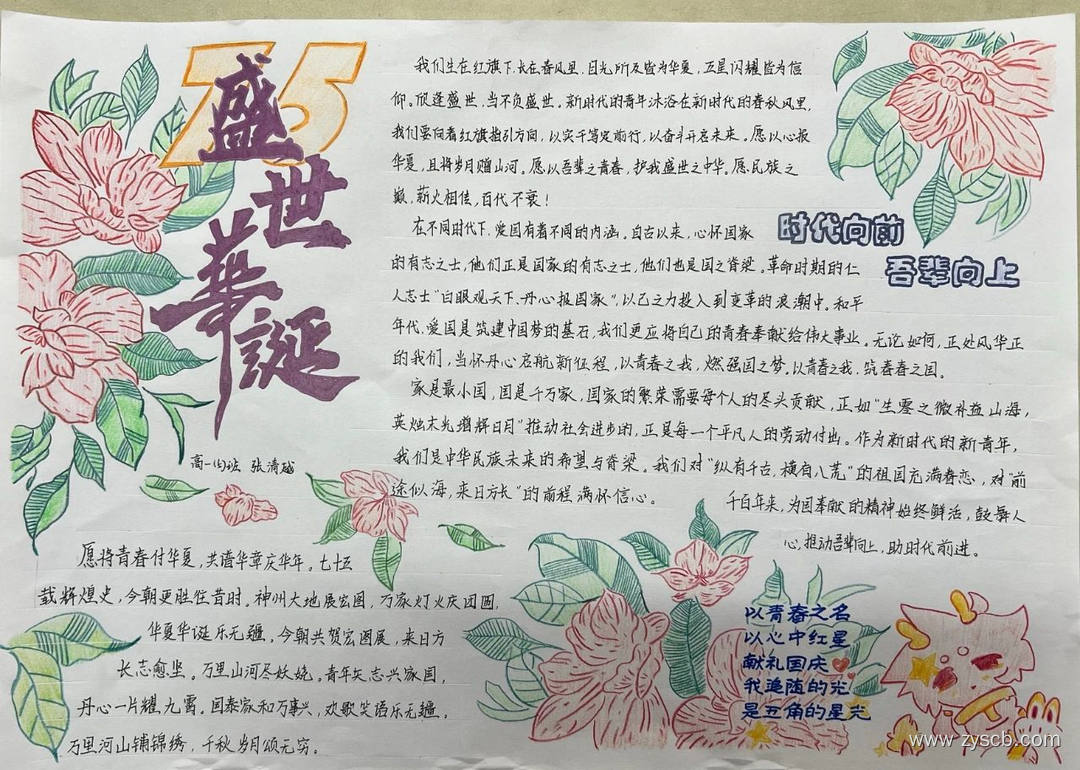 75
盛世華誕
高一(5)班 张清越
我们生在红旗下,长在春风里,目光所及皆为华夏,五星闪耀皆为信
仰。欣逢盛世,当不负盛世。新时代的青年沐浴在新时代的春秋风里,
我们要向着红旗指引方向,以实干笃定前行,以奋斗开启未来。愿以心报
华夏,且将岁月赠山河。愿以吾辈之青春,护我盛世之中华。愿民族之
巅,薪火相传,百代不衰!
时代向前
吾辈向上
在不同时代下,爱国有着不同的内涵。自古以来,心怀国家
的有志之士,他们正是国家的有志之士,他们也是国之脊梁。革命时期的仁
人志士"白眼观天下,丹心报国家",以己之力投入到变革的浪潮中。和平
年代,爱国是筑建中国梦的基石,我们更应将自己的青春奉献给伟大事业。无论如何,正处风华正
的我们,当怀丹心启航新征程,以青春之我,燃强国之梦。以青春之我,筑春春之国。
家是最小国,国是千万家,国家的繁荣需要每个人的尽头贡献,正如"尘雾之微补益山海,
英烛末光增辉日月"推动社会进步的,正是每一个平凡人的劳动付出。作为新时代的新青年,
我们是中华民族未来的希望与脊梁。我们对"纵有千古,横有八荒"的祖国充满眷恋,对"前
途似海,来日方长"的前程满怀信心。
千百年来,为国奉献的精神始终鲜活,鼓舞人
心,推动吾辈向上,助时代前进。
愿将青春付华夏,共谱华章庆华年。七十五
载辉煌史,今朝更胜往昔时。神州大地展宏图,万家灯火庆团圆,
华夏华诞乐无疆。今朝共贺宏图展,来日方
长志愈坚。万里山河尽妖娆。青年矢志兴家国,
丹心一片耀九霄。国泰家和万事兴,欢歌笑语乐无疆,
万里河山铺锦绣,千秋岁月颂无穷。
以青春之名
以心中红星
献礼国庆
我追随的光
是五角的星光
www.zyscb.com